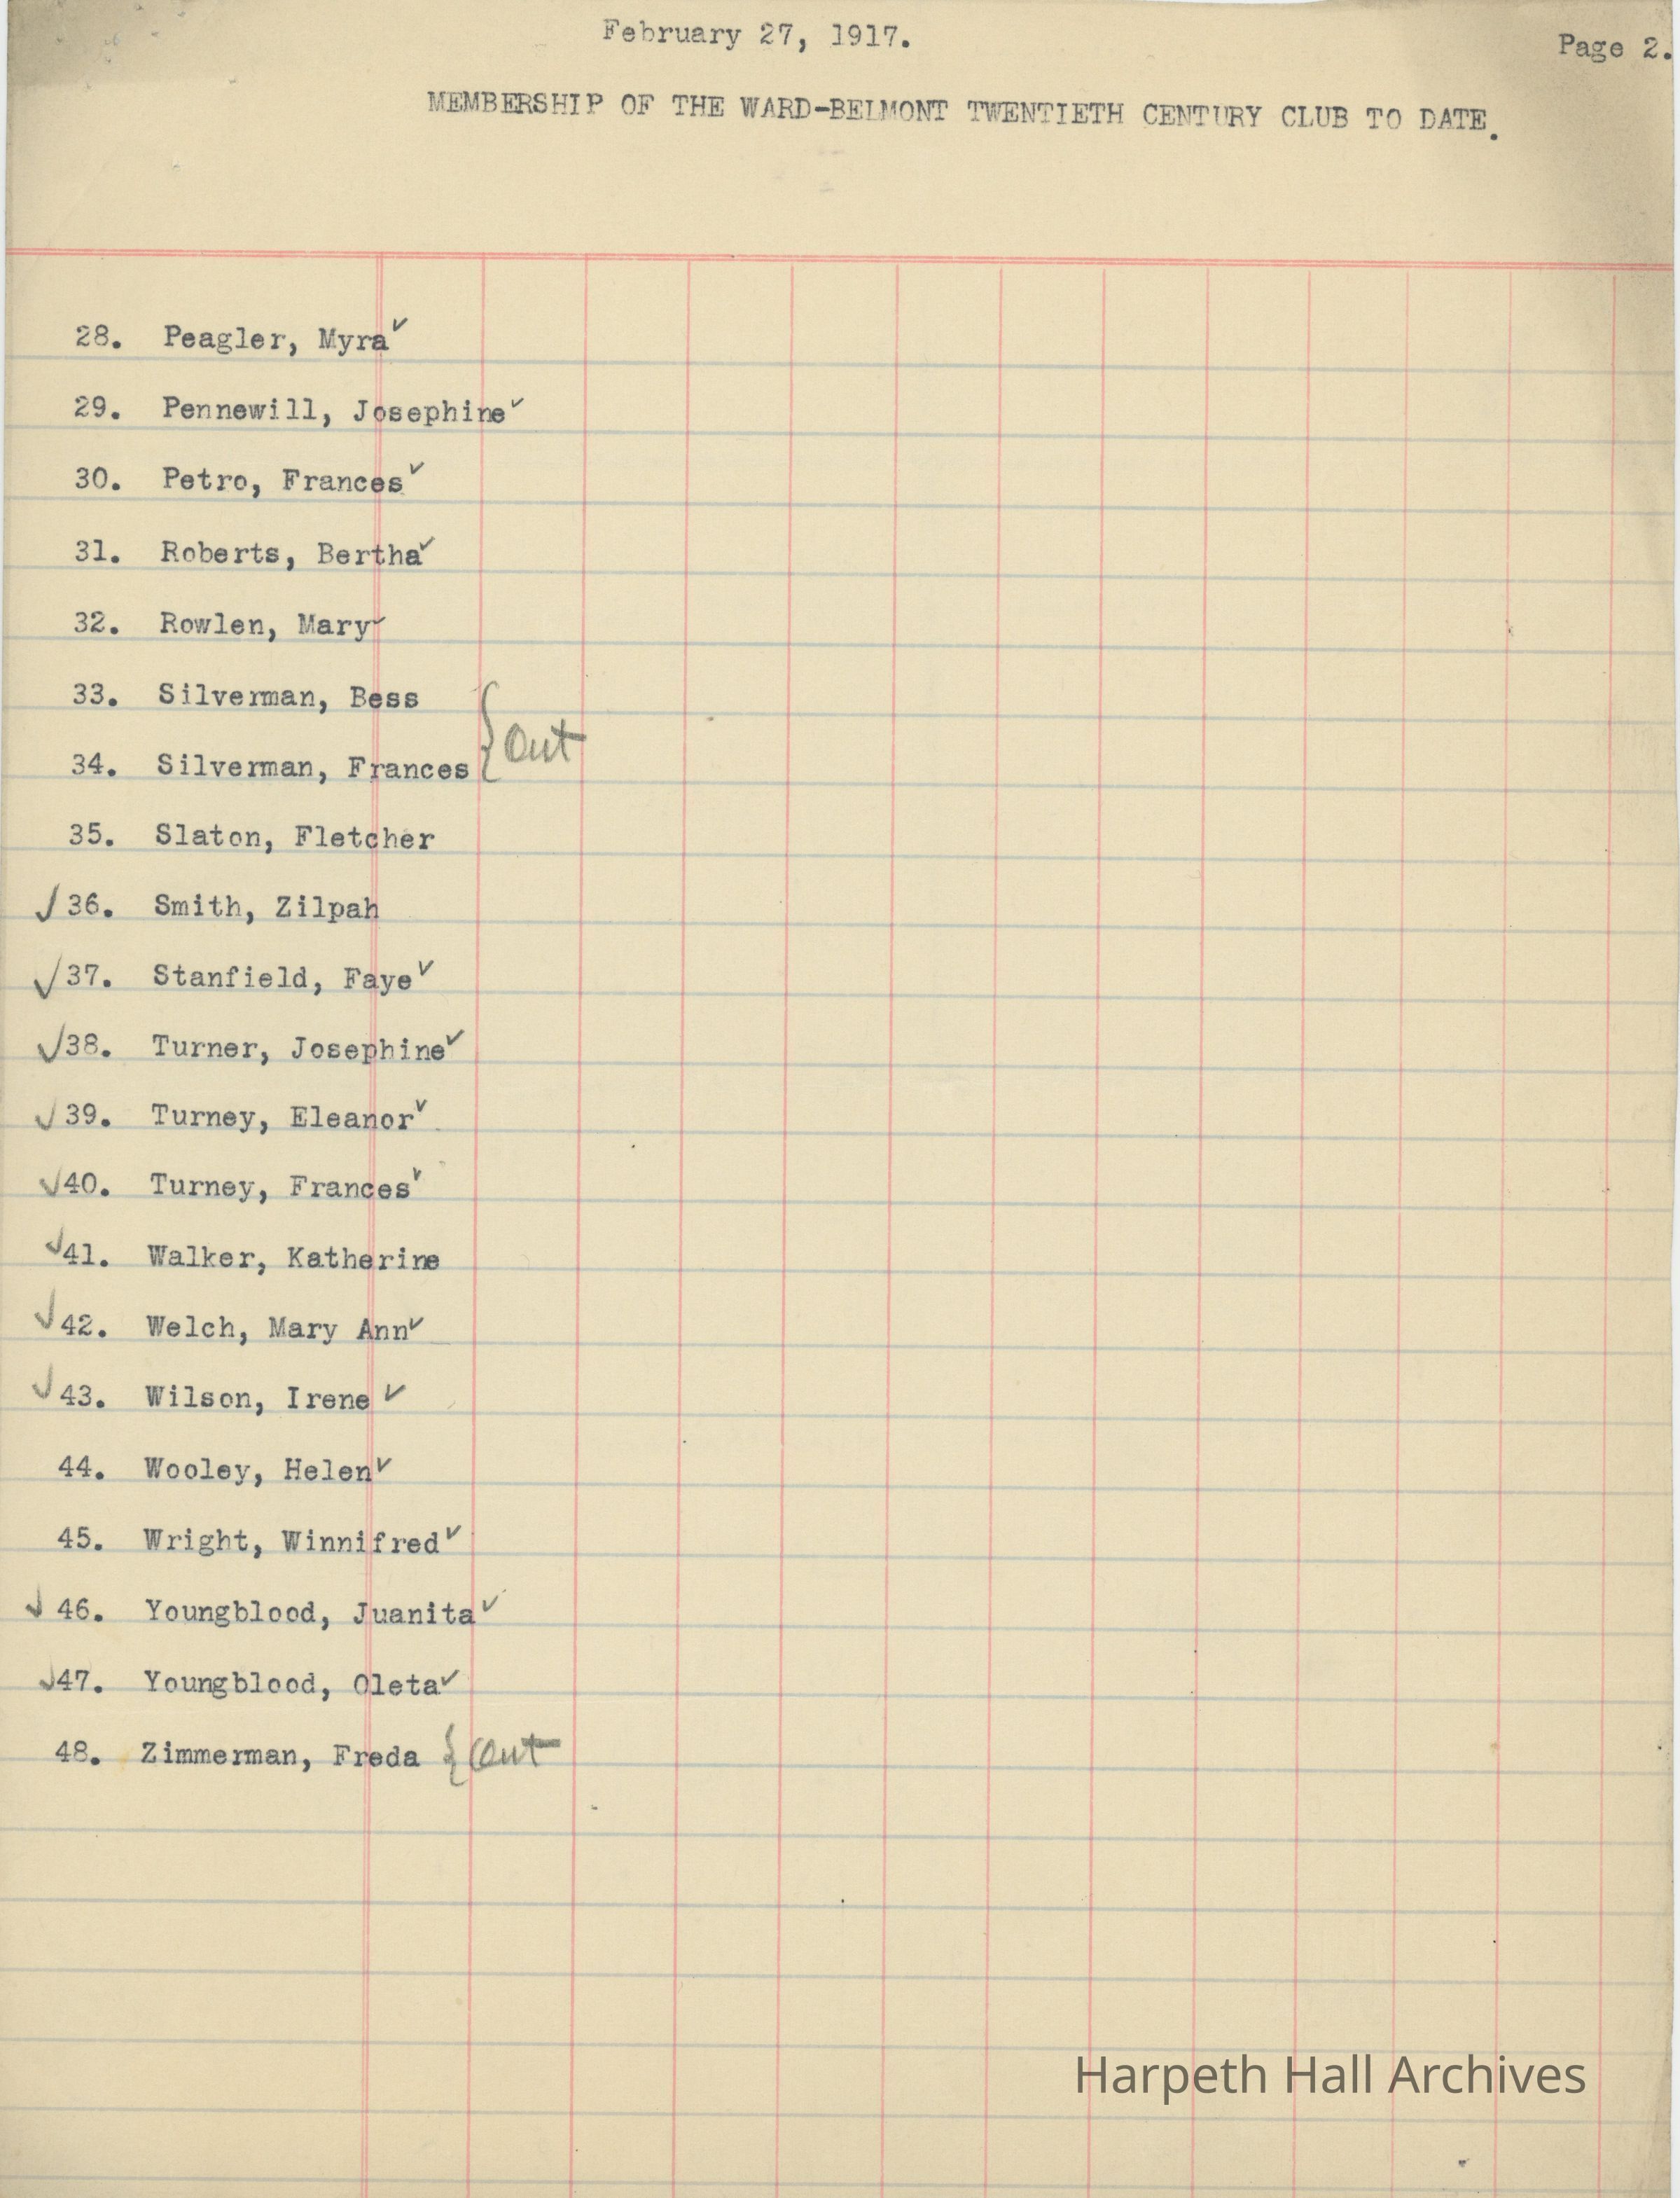 February 27, 1917.
Page 2.
MEMBERSHIP OF THE WARD-BELMONT TWENTIETH CENTURY CLUB TO DATE.
28. Peagler, Myra ✓
29. Pennewill, Josephine ✓
30. Petro, Frances ✓
31. Roberts, Bertha ✓
32. Rowlen, Mary ✓
33. Silverman, Bess
{ Out
34. Silverman, Frances
35. Slaton, Fletcher
✓ 36. Smith, Zilpah
✓ 37. Stanfield, Faye ✓
✓ 38. Turner, Josephine ✓
✓ 39. Turney, Eleanor ✓
✓ 40. Turney, Frances ✓
✓ 41. Walker, Katherine
✓ 42. Welch, Mary Ann ✓
✓ 43. Wilson, Irene ✓
44. Wooley, Helen ✓
45. Wright, Winnifred ✓
✓ 46. Youngblood, Juanita ✓
✓ 47. Youngblood, Oleta ✓
48. Zimmerman, Freda { Out
Harpeth Hall Archives